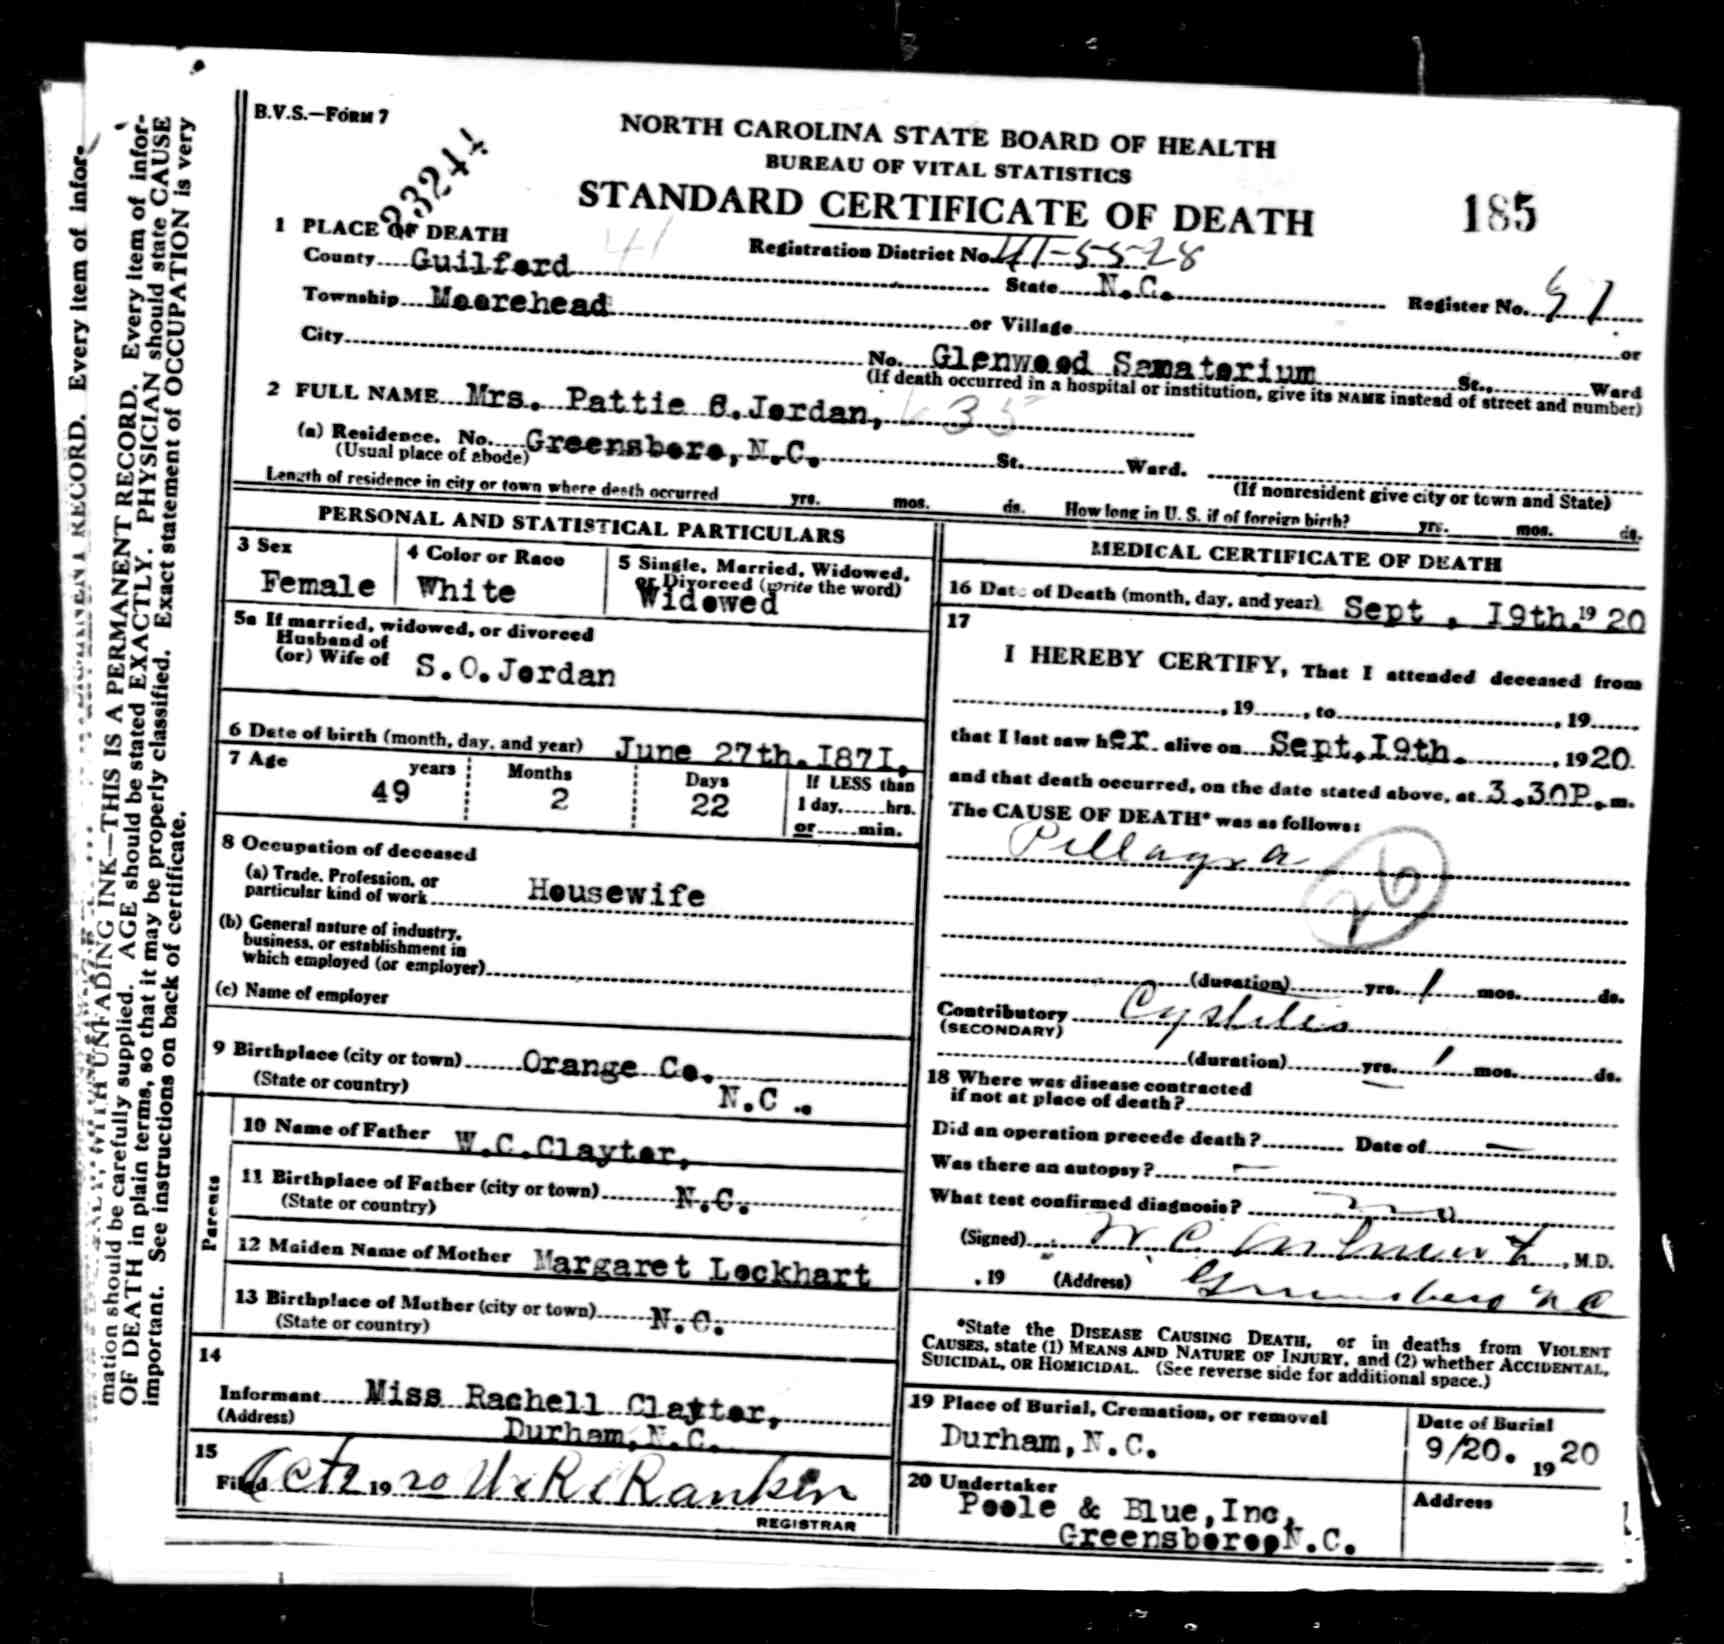 B.V.S.—FORM 7
23244
NORTH CAROLINA STATE BOARD OF HEALTH
BUREAU OF VITAL STATISTICS
STANDARD CERTIFICATE OF DEATH
185
1 PLACE OF DEATH
41
Registration District No. 41-5528
County Guilford
State N.C.
Register No.
Township Moorehead
or Village
or
City
No. Glenwood Sanatorium St., Ward
(If death occurred in a hospital or institution, give its NAME instead of street and number)
2 FULL NAME Mrs. Pattie C.Jordan, 35
(a) Residence. No. Greensboro, N.C. St. Ward.
(Usual place of abode)
(If nonresident give city or town and State)
Length of residence in city or town where death occurred yrs. mos. ds. How long in U. S. if of foreign birth? yrs. mos. ds.
PERSONAL AND STATISTICAL PARTICULARS
3 Sex
Female
4 Color or Race
White
5 Single, Married, Widowed,
or Divorced (write the word)
Widowed
5a If married, widowed, or divorced
Husband of
(or) Wife of S.O.Jordan
6 Date of birth (month, day, and year) June 27th.I87I.
7 Age years Months Days If LESS than
49 2 22 1 day, hrs.
or min.
8 Occupation of deceased
(a) Trade, Profession, or
particular kind of work Housewife
(b) General nature of industry,
business, or establishment in
which employed (or employer)
(c) Name of employer
9 Birthplace (city or town) Orange Co.
(State or country) N.C .
Parents
10 Name of Father W.C.Claytor,
11 Birthplace of Father (city or town) N.C.
(State or country)
12 Maiden Name of Mother Margaret Lockhart
13 Birthplace of Mother (city or town) N.C.
(State or country)
14
Informant Miss Rachell Claytor,
(Address) Durham,N.C.
15
Filed Oct 2 1920 W.R.Rankin
REGISTRAR
MEDICAL CERTIFICATE OF DEATH
16 Date of Death (month, day, and year) Sept . I9th. 19 20
17
I HEREBY CERTIFY, That I attended deceased from
, 19 , to , 19
that I last saw her alive on Sept,I9th. , 1920
and that death occurred, on the date stated above, at 3.30P. m.
The CAUSE OF DEATH* was as follows:
Pellagra
26
(duration) yrs. 1 mos. ds.
Contributory Cystitis
(SECONDARY)
(duration) yrs. 1 mos. ds.
18 Where was disease contracted
if not at place of death?
Did an operation precede death? Date of —
Was there an autopsy? —
What test confirmed diagnosis? no
(Signed) W.C. , M.D.
, 19 (Address) Greensboro N C
*State the DISEASE CAUSING DEATH, or in deaths from VIOLENT
CAUSES, state (1) MEANS AND NATURE OF INJURY, and (2) whether ACCIDENTAL,
SUICIDAL, OR HOMICIDAL. (See reverse side for additional space.)
19 Place of Burial, Cremation, or removal
Durham,N.C.
Date of Burial
9/20. 1920
20 Undertaker
Poole & Blue,Inc,
Greensboro,N.C.
Address
mation should be carefully supplied. AGE should be stated EXACTLY. PHYSICIAN should state CAUSE
OF DEATH in plain terms, so that it may be properly classified. Exact statement of OCCUPATION is very
important. See instructions on back of certificate.
WITH UNFADING INK—THIS IS A PERMANENT RECORD. Every item of infor-
RECORD. Every item of infor-